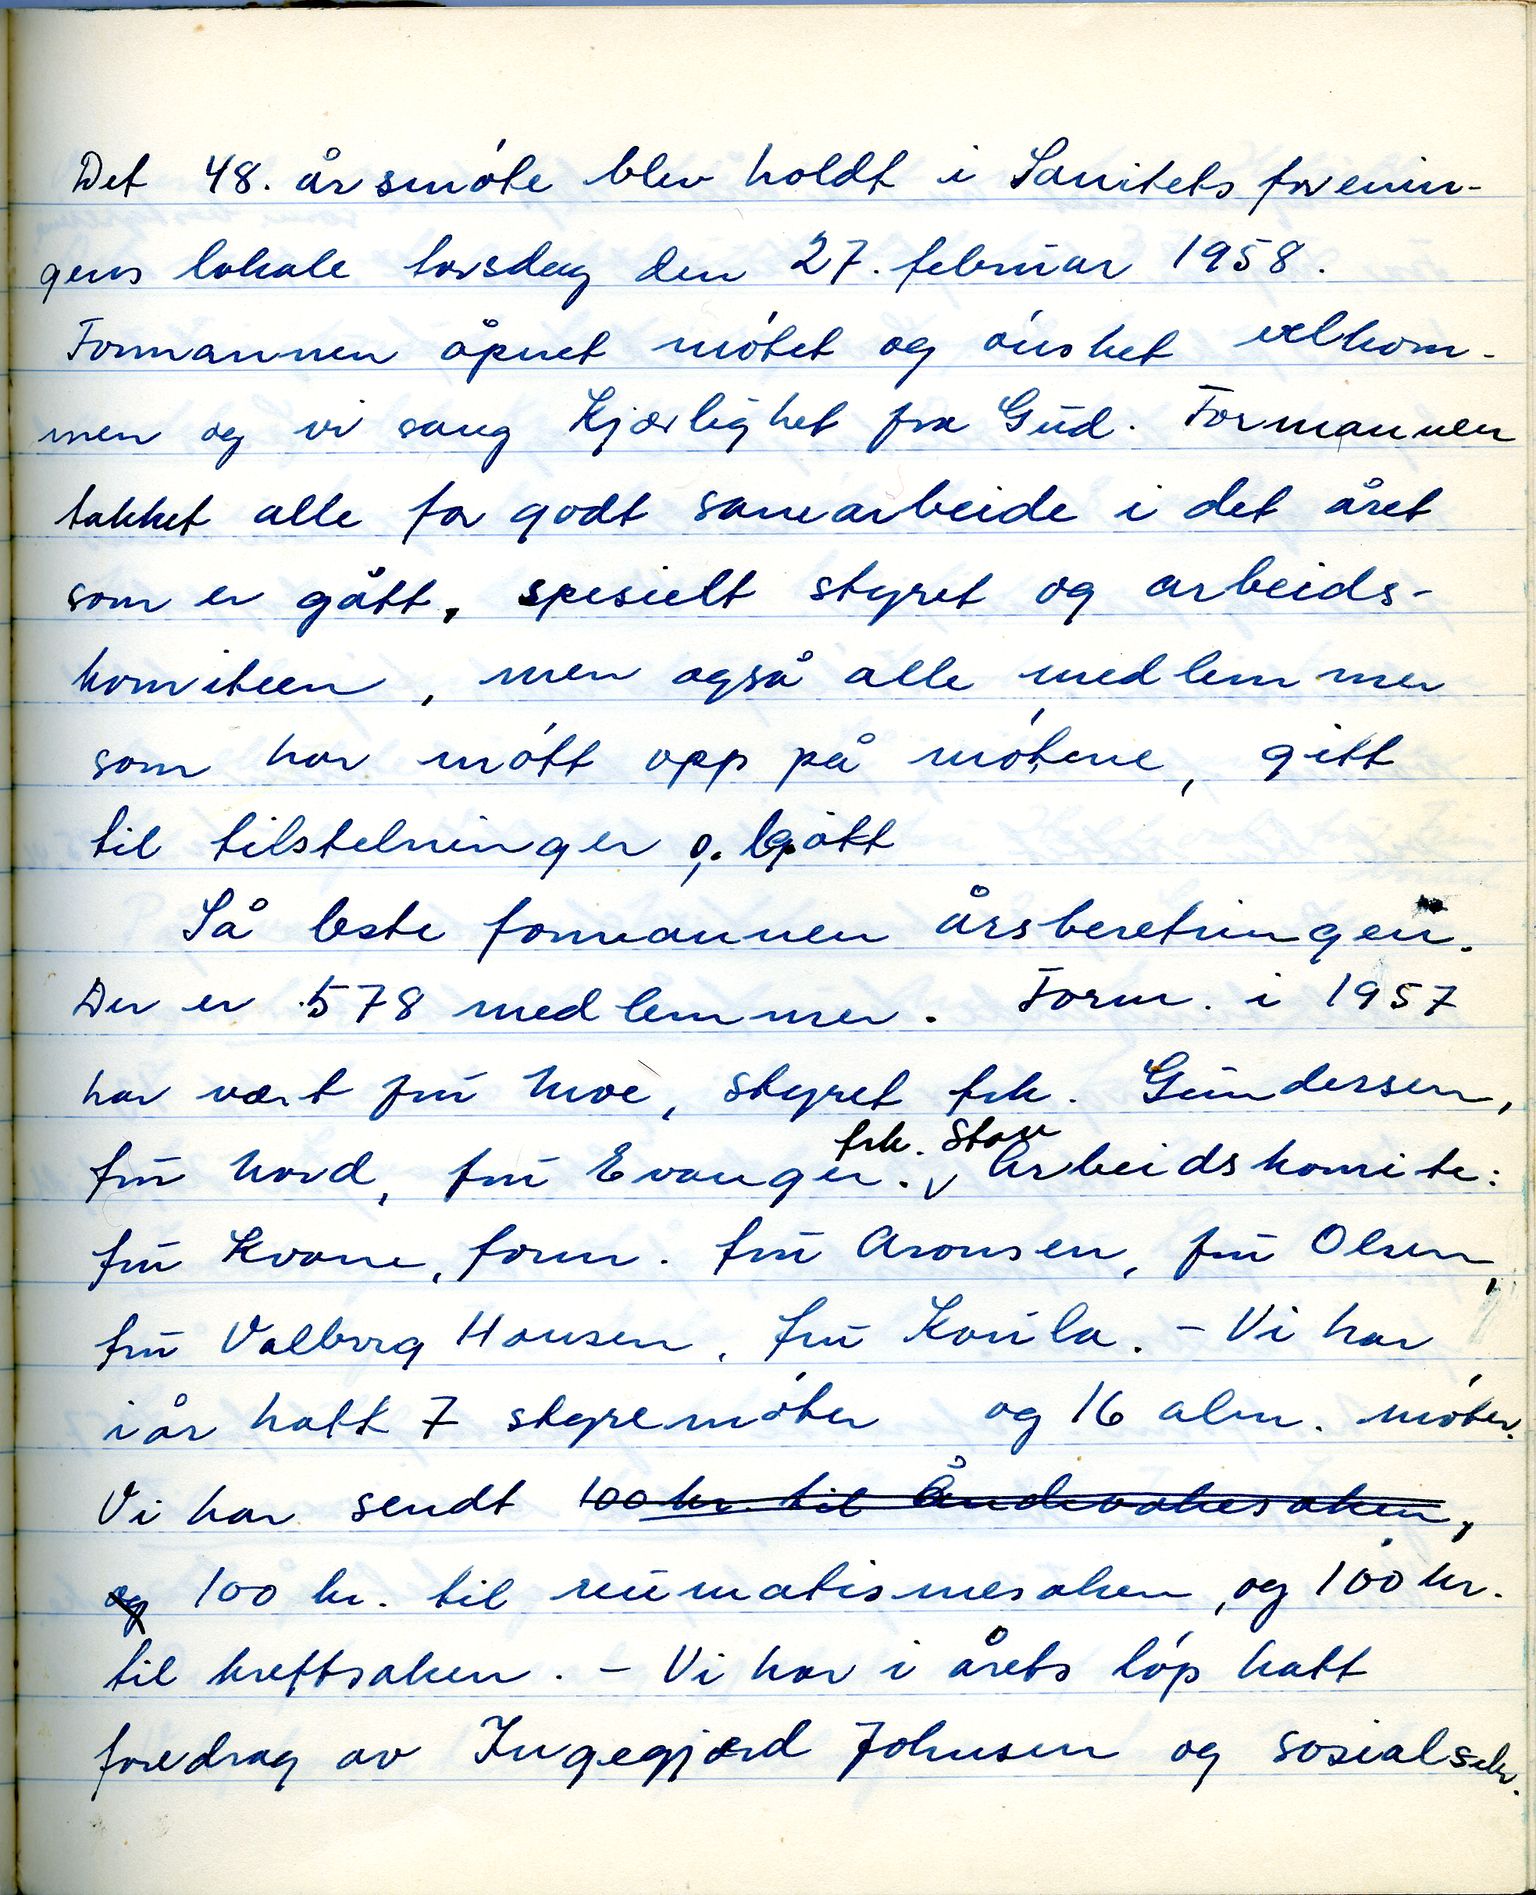 Det 48. årsmøte blev holdt i Sanitetsforenin-
gens lokale torsdag den 27. februar 1958.
Formannen åpnet møtet og ønsket velkom-
men og vi sang Kjærlighet fra Gud. Formannen
takket alle for godt samarbeide i det året
som er gått, spesielt styret og arbeids-
komiteen, men også alle medlemmer
som har møtt opp på møtene, gitt
til tilstelninger o.
Så leste formannen årsberetningen.
Der er 578 medlemmer. Form. i 1957
har vært fru Moe, styret frk. Gundersen,
frk. Stav
fru Nord, fru Evanger. v Arbeidskomite:
fru Kvane, form. fru Aronsen, fru Olsen,
fru Valborg Hansen, fru Karula. – Vi har
i år hatt 7 styremøter og 16 alm. møter.
Vi har sendt 100 kr. til Åndevakesaken,
og 100 kr. til reumatismesaken, og 100 kr.
til kreftsaken. – Vi har i årets løp hatt
foredrag av Ingegjærd Johnsen og sosialsekr.